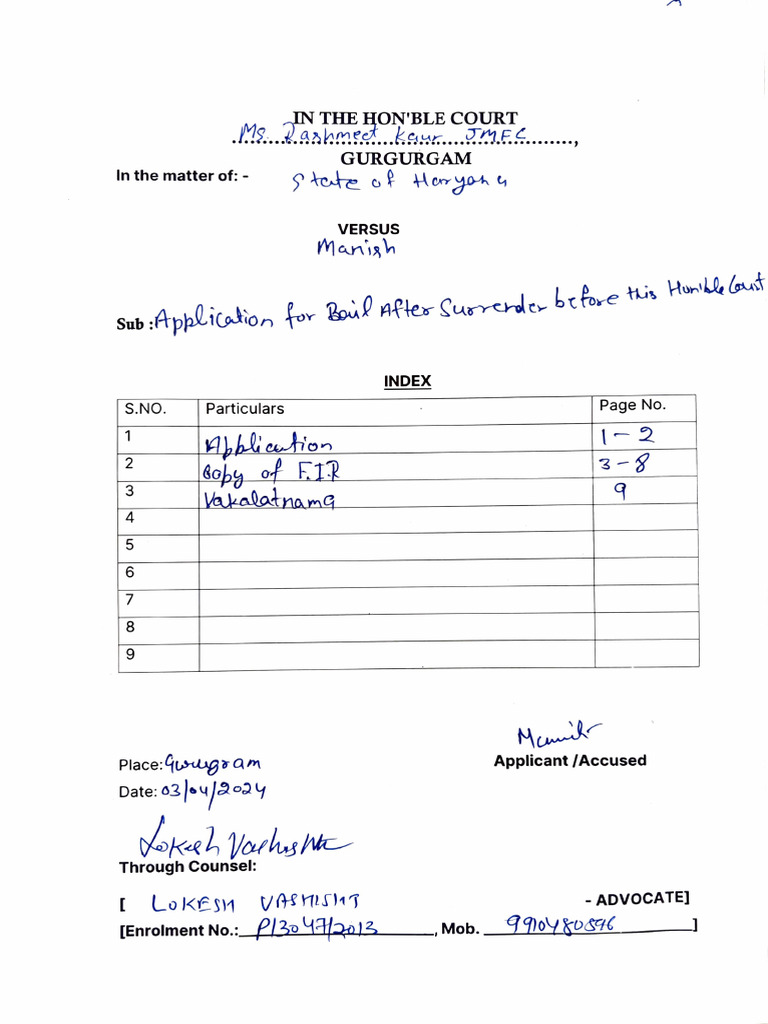 IN THE HON'BLE COURT
Ms. Rashmeet Kaur JMFC
........................................................,
GURGURGAM
In the matter of: - State of Haryana
VERSUS
Manish
Sub : Application for Bail After Surrender before this Hon'ble Court
INDEX
S.NO. Particulars Page No.
1 Application 1-2
2 Copy of F.I.R 3-8
3 Vakalatnama 9
4
5
6
7
8
9
Manish
Place: Gurugram Applicant /Accused
Date: 03/04/2024
Lokesh Vashisht
Through Counsel:
[ LOKESH VASHISHT - ADVOCATE]
[Enrolment No.: P/3047/2013, Mob. 9910480596 ]